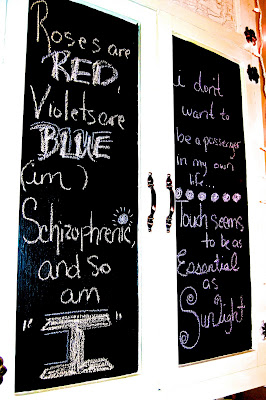 Roses are
RED,
Violets are
BLUE
(im)
Schizophrenic,
and so
am
"I"
i don't
want to
be a passenger
in my own
life...
Touch seems
to be as
Essential
as
Sunlight